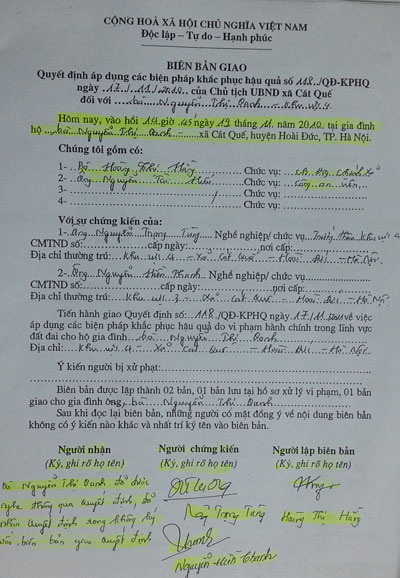 CỘNG HOÀ XÃ HỘI CHỦ NGHĨA VIỆT NAM
Độc lập – Tự do – Hạnh phúc
BIÊN BẢN GIAO
Quyết định áp dụng các biện pháp khắc phục hậu quả số 118/QĐ-KPHQ
ngày 17/11/2010 của Chủ tịch UBND xã Cát Quế
đối với bà Nguyễn Thị Oanh - khu vực 4
Hôm nay, vào hồi 14 giờ 45 ngày 19 tháng 11 năm 2010, tại gia đình
hộ bà Nguyễn Thị Oanh xã Cát Quế, huyện Hoài Đức, TP. Hà Nội.
Chúng tôi gồm có:
1- Bà Hoàng Thị Hằng Chức vụ:
2- Ông Nguyễn Tài Chức vụ: Công an viên
3- Chức vụ:
4- Chức vụ:
Với sự chứng kiến của:
1- Ông Nguyễn Trọng Tăng Nghề nghiệp/ chức vụ Trưởng khu vực 4
CMTND số: cấp ngày: nơi cấp:
Địa chỉ thường trú: Khu vực 4 - Xã Cát Quế - Hoài Đức - Hà Nội.
2- Ông Nguyễn Hiền Thanh Nghề nghiệp/ chức vụ
CMTND số: cấp ngày: nơi cấp:
Địa chỉ thường trú: Khu vực 3 - Xã Cát Quế - Hoài Đức - Hà Nội
Tiến hành giao Quyết định số: 118/QĐ-KPHQ ngày 17/11/ về việc
áp dụng các biện pháp khắc phục hậu quả do vi phạm hành chính trong lĩnh vực
đất đai cho hộ gia đình bà Nguyễn Thị Oanh
Địa chỉ: Khu vực 4 - Xã Cát Quế - Hoài Đức - Hà Nội.
Ý kiến người bị xử phạt:
Biên bản được lập thành 02 bản, 01 bản lưu tại hồ sơ xử lý vi phạm, 01 bản
giao cho gia đình ông, bà Nguyễn Thị Oanh
Sau khi đọc lại biên bản, những người có mặt đồng ý về nội dung biên bản
không có ý kiến nào khác và nhất trí ký tên vào biên bản.
Người nhận Người chứng kiến Người lập biên bản
(Ký, ghi rõ họ tên) (Ký, ghi rõ họ tên) (Ký, ghi rõ họ tên)
Bà Nguyễn Thị Oanh đã được
nghe thông qua quyết định, đã
nhận quyết định song không ký
vào biên bản giao quyết định
Ng Trọng Tăng
Hoàng Thị Hằng
Nguyễn Hiền Thanh